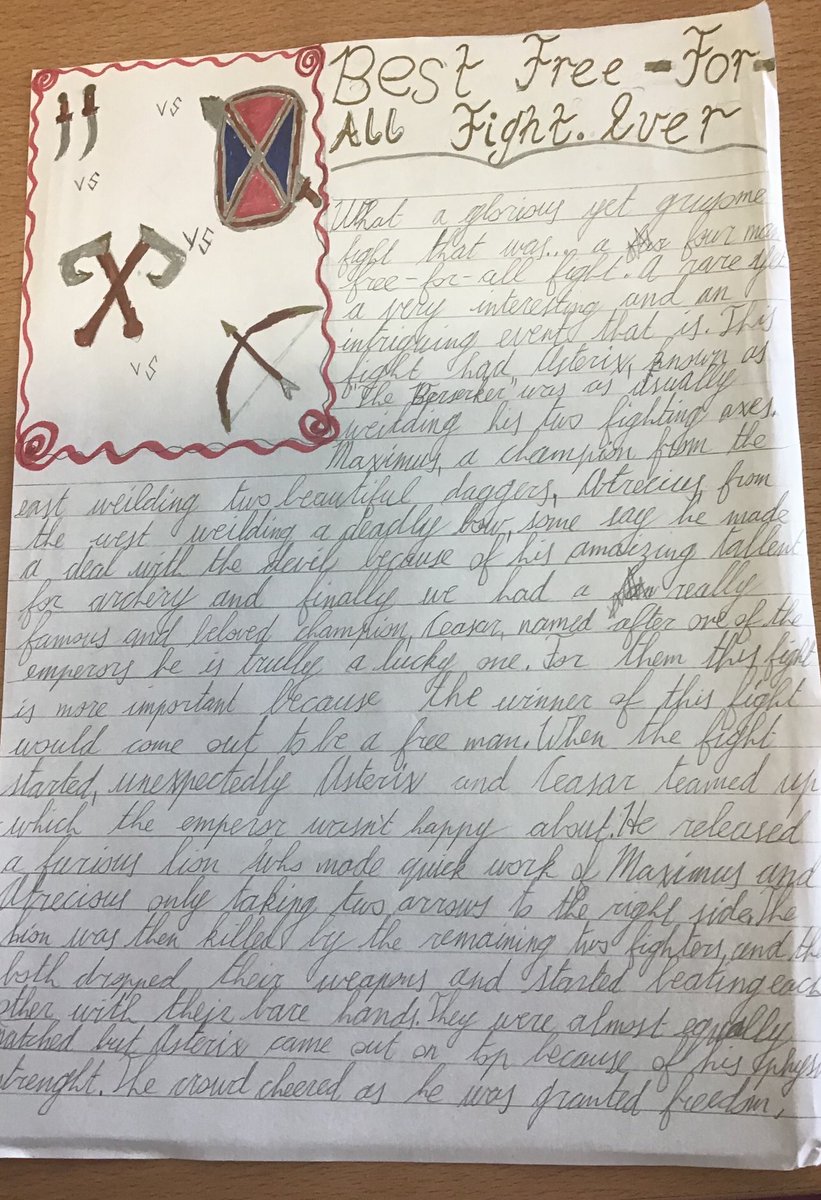 Best Free-For-
All Fight. Ever
vs
vs
vs
vs
What a glorious yet gruesome
fight that was... a four man
free-for-all fight. A rare yet
a very interesting and an
intriguing event that is. This
fight had Asterix, known as
"The Berserker" was as usually
weilding his two fighting axes.
Maximus, a champion from the
east weilding two beautiful daggers, Atrecius, from
the west weilding a deadly bow, some say he made
a deal with the devil because of his amaizing tallent
for archery and finally we had a really
famous and beloved champion, Ceasar, named after one of the
emperors he is trully a lucky one. For them this fight
is more important because the winner of this fight
would come out to be a free man. When the fight
started, unexpectedly Asterix and Ceasar teamed up
which the emperor wasn't happy about. He released
a furious lion who made quick work of Maximus and
Atrecious only taking two arrows to the right side. The
lion was then killed by the remaining two fighters, and
both dropped their weapons and started beating each
other with their bare hands. They were almost equally
matched but Asterix came out on top because of his
strenght. The crowd cheered as he was granted freedom,